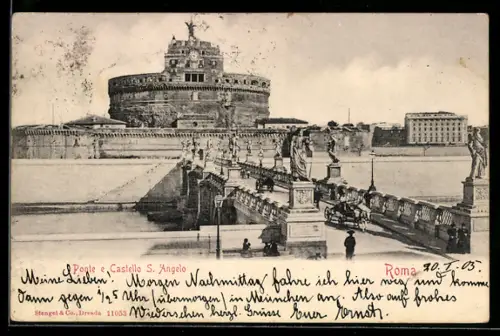 Ponte e Castello S. Angelo
Roma 20. I. 05
Meine Lieben! Morgen Nachmittag fahre ich hier weg und komme
dann gegen 1/2 5 Uhr (übermorgen) in München an. Also auf frohes
Stengel & Co., Dresda 11053 Wiedersehen herzl. Grüsse Euer Ernst.